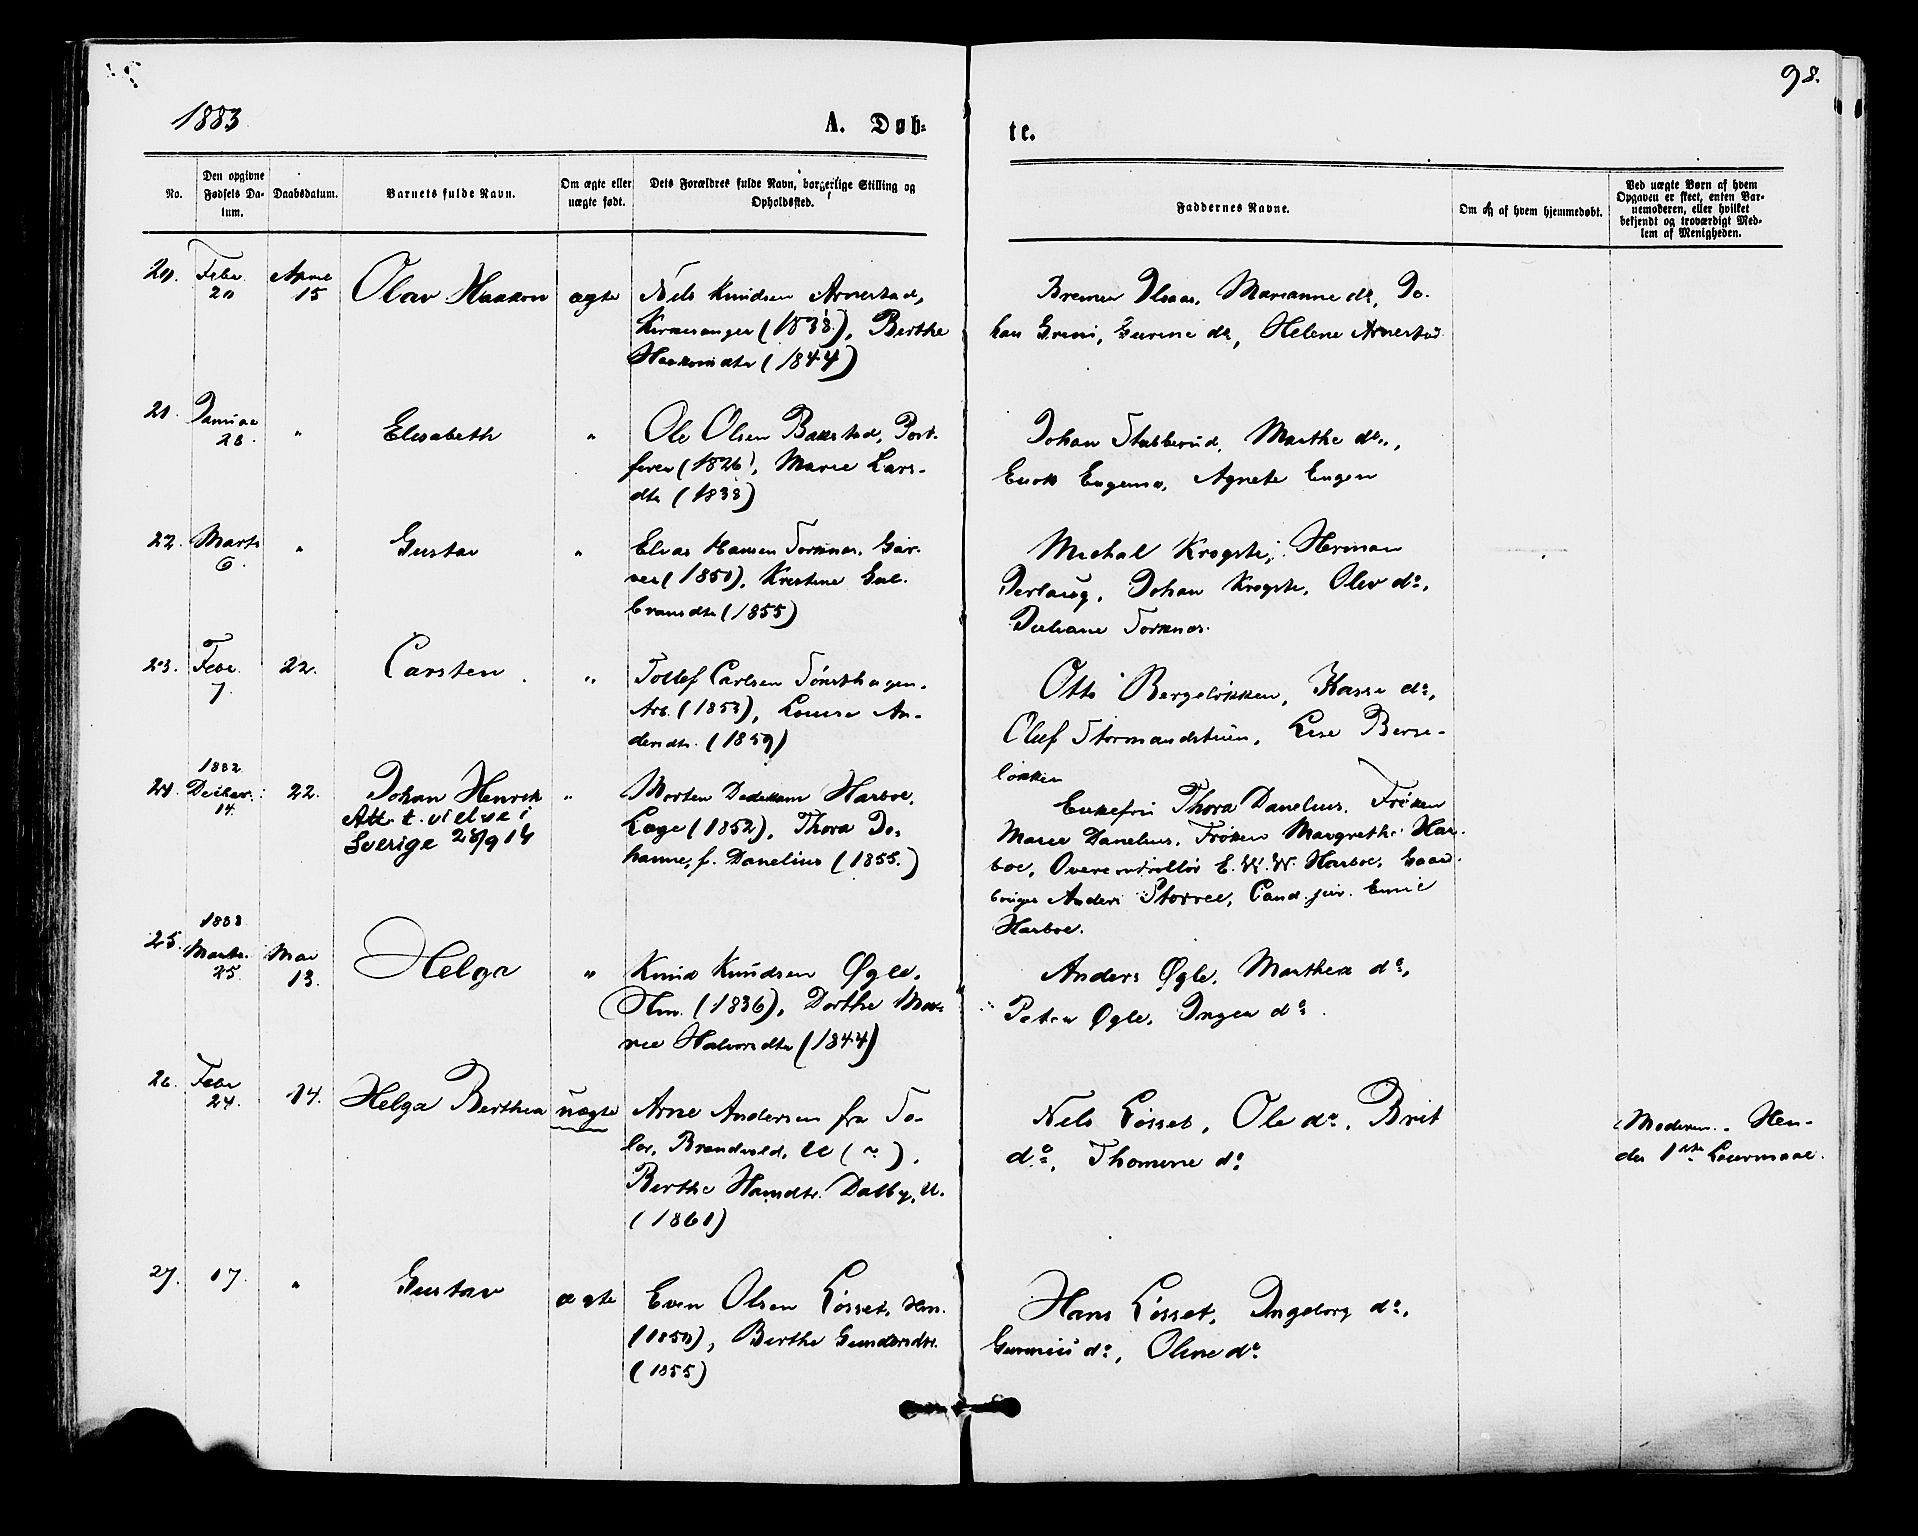 98.
1883
A. Døb-
te.
No.
Den opgivne Fødsels Da-
tum.
Daabsdatum.
Barnets fulde Navn.
Om ægte eller
uægte født.
Dets Forældres fulde Navn, borgerlige Stilling og
Opholdssted.
Faddernes Navne.
Om og af hvem hjemmedøbt.
Ved uægte Børn af hvem
Opgaven er skeet, enten Bar-
nemoderen, eller hvilket
bekjendt og troværdigt Med-
lem af Menigheden.
20. Febr. 20 April 15 Olav Haakon ægte Nils Knudsen Arnestad,
Kirkesanger (1838), Berthe
Haakonsdtr (1844)
Johan Greni, Gurine do, Helene Arnestad
21. Januar 28. " Elisabeth " Ole Olsen Bakstad, Post-
(1826), Marie Lars-
dtr (1838)
Johan Stubberud, Marthe do.,
Agnete Engen
22. Marts 6. " Gustav " Elias Hansen Torknæs, Gar-
ver (1850), Kristine Gul-
brandsdtr (1855)
Michal Krogsti, Herman
Johan Krogsti, Olev do,
Juliane Torknæs.
23. Febr. 7. 22. Carsten " Tollef Carlsen
Arb. (1853), Louise An-
dersdtr. (1859)
Otto Bergeløkken, do,
Oluf Lise Berge-
løkken
24. 1882 Decbr. 14. 22. Johan Henrik " Morten Dedekam Harboe,
Att. t. vielse i
Sverige 28/9 14
Læge (1852), Thora Jo-
hanne, f. Danelius (1855.)
Enkefru Thora Danelius, Frøken
Marie Danelius, Frøken Margrethe Har-
boe, Overcontrollør E. W. Harboe, Gaard-
bruger Anders Storree, Cand. jur. Emil
Harboe.
25. 1883 Marts 25. Mai 13. Helga " Knud Knudsen Øgle,
Hm. (1836), Dorthe Ma-
rie Halvorsdtr (1844)
Anders Øgle, Marthea do,
Peter Øgle, Inger do.
26. Febr 24. 14. Helga Berthea uægte Arne Andersen fra So-
lør, Brandvold, U ( ),
Berthe Hansdtr. Dalby, U.
(1860)
Nils Løsset, Ole do, Brit
do, Thomine do
Moderen. - Hen-
des 1ste Leiermaal.
27. 17. " Gustav ægte Even Olsen Løsset, Hm.
(1850), Berthe Gundersdtr.
(1855)
Hans Løsset, Ingeborg do,
do, Oline do